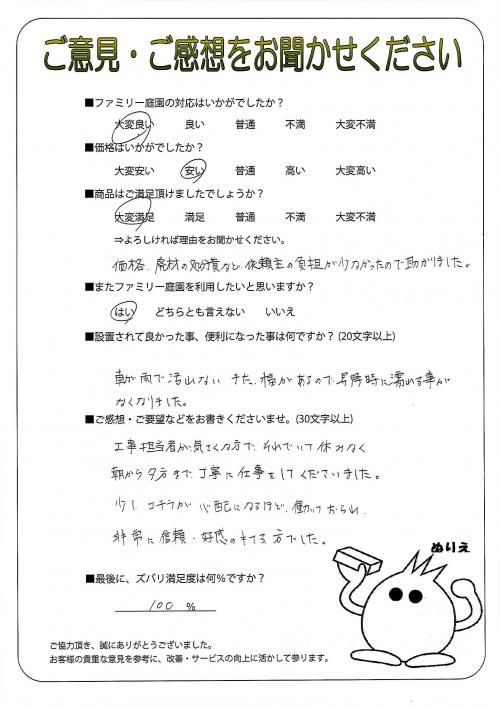 ご意見・ご感想をお聞かせください
■ファミリー庭園の対応はいかがでしたか？
大変良い 良い 普通 不満 大変不満
■価格はいかがでしたか？
大変安い 安い 普通 高い 大変高い
■商品はご満足頂けましたでしょうか？
大変満足 満足 普通 不満 大変不満
⇒よろしければ理由をお聞かせください。
価格、廃材の処損など、依頼主の負担が少なかったので助かりました。
■またファミリー庭園を利用したいと思いますか？
はい どちらとも言えない いいえ
■設置されて良かった事、便利になった事は何ですか？(20文字以上)
車が雨で汚れない。また、幅があるので昇降時に濡れる事が
なくなりました。
■ご感想・ご要望などをお書きくださいませ。(30文字以上)
工事担当者が気さくな方で、それでいて休みなく
朝から夕方まで、丁寧に仕事をしてくださいました。
少し、コチラが心配になるほど、働いておられ、
非常に信頼・好感のもてる方でした。
ぬりえ
■最後に、ズバリ満足度は何％ですか？
100 %
ご協力頂き、誠にありがとうございました。
お客様の貴重な意見を参考に、改善・サービスの向上に活かして参ります。